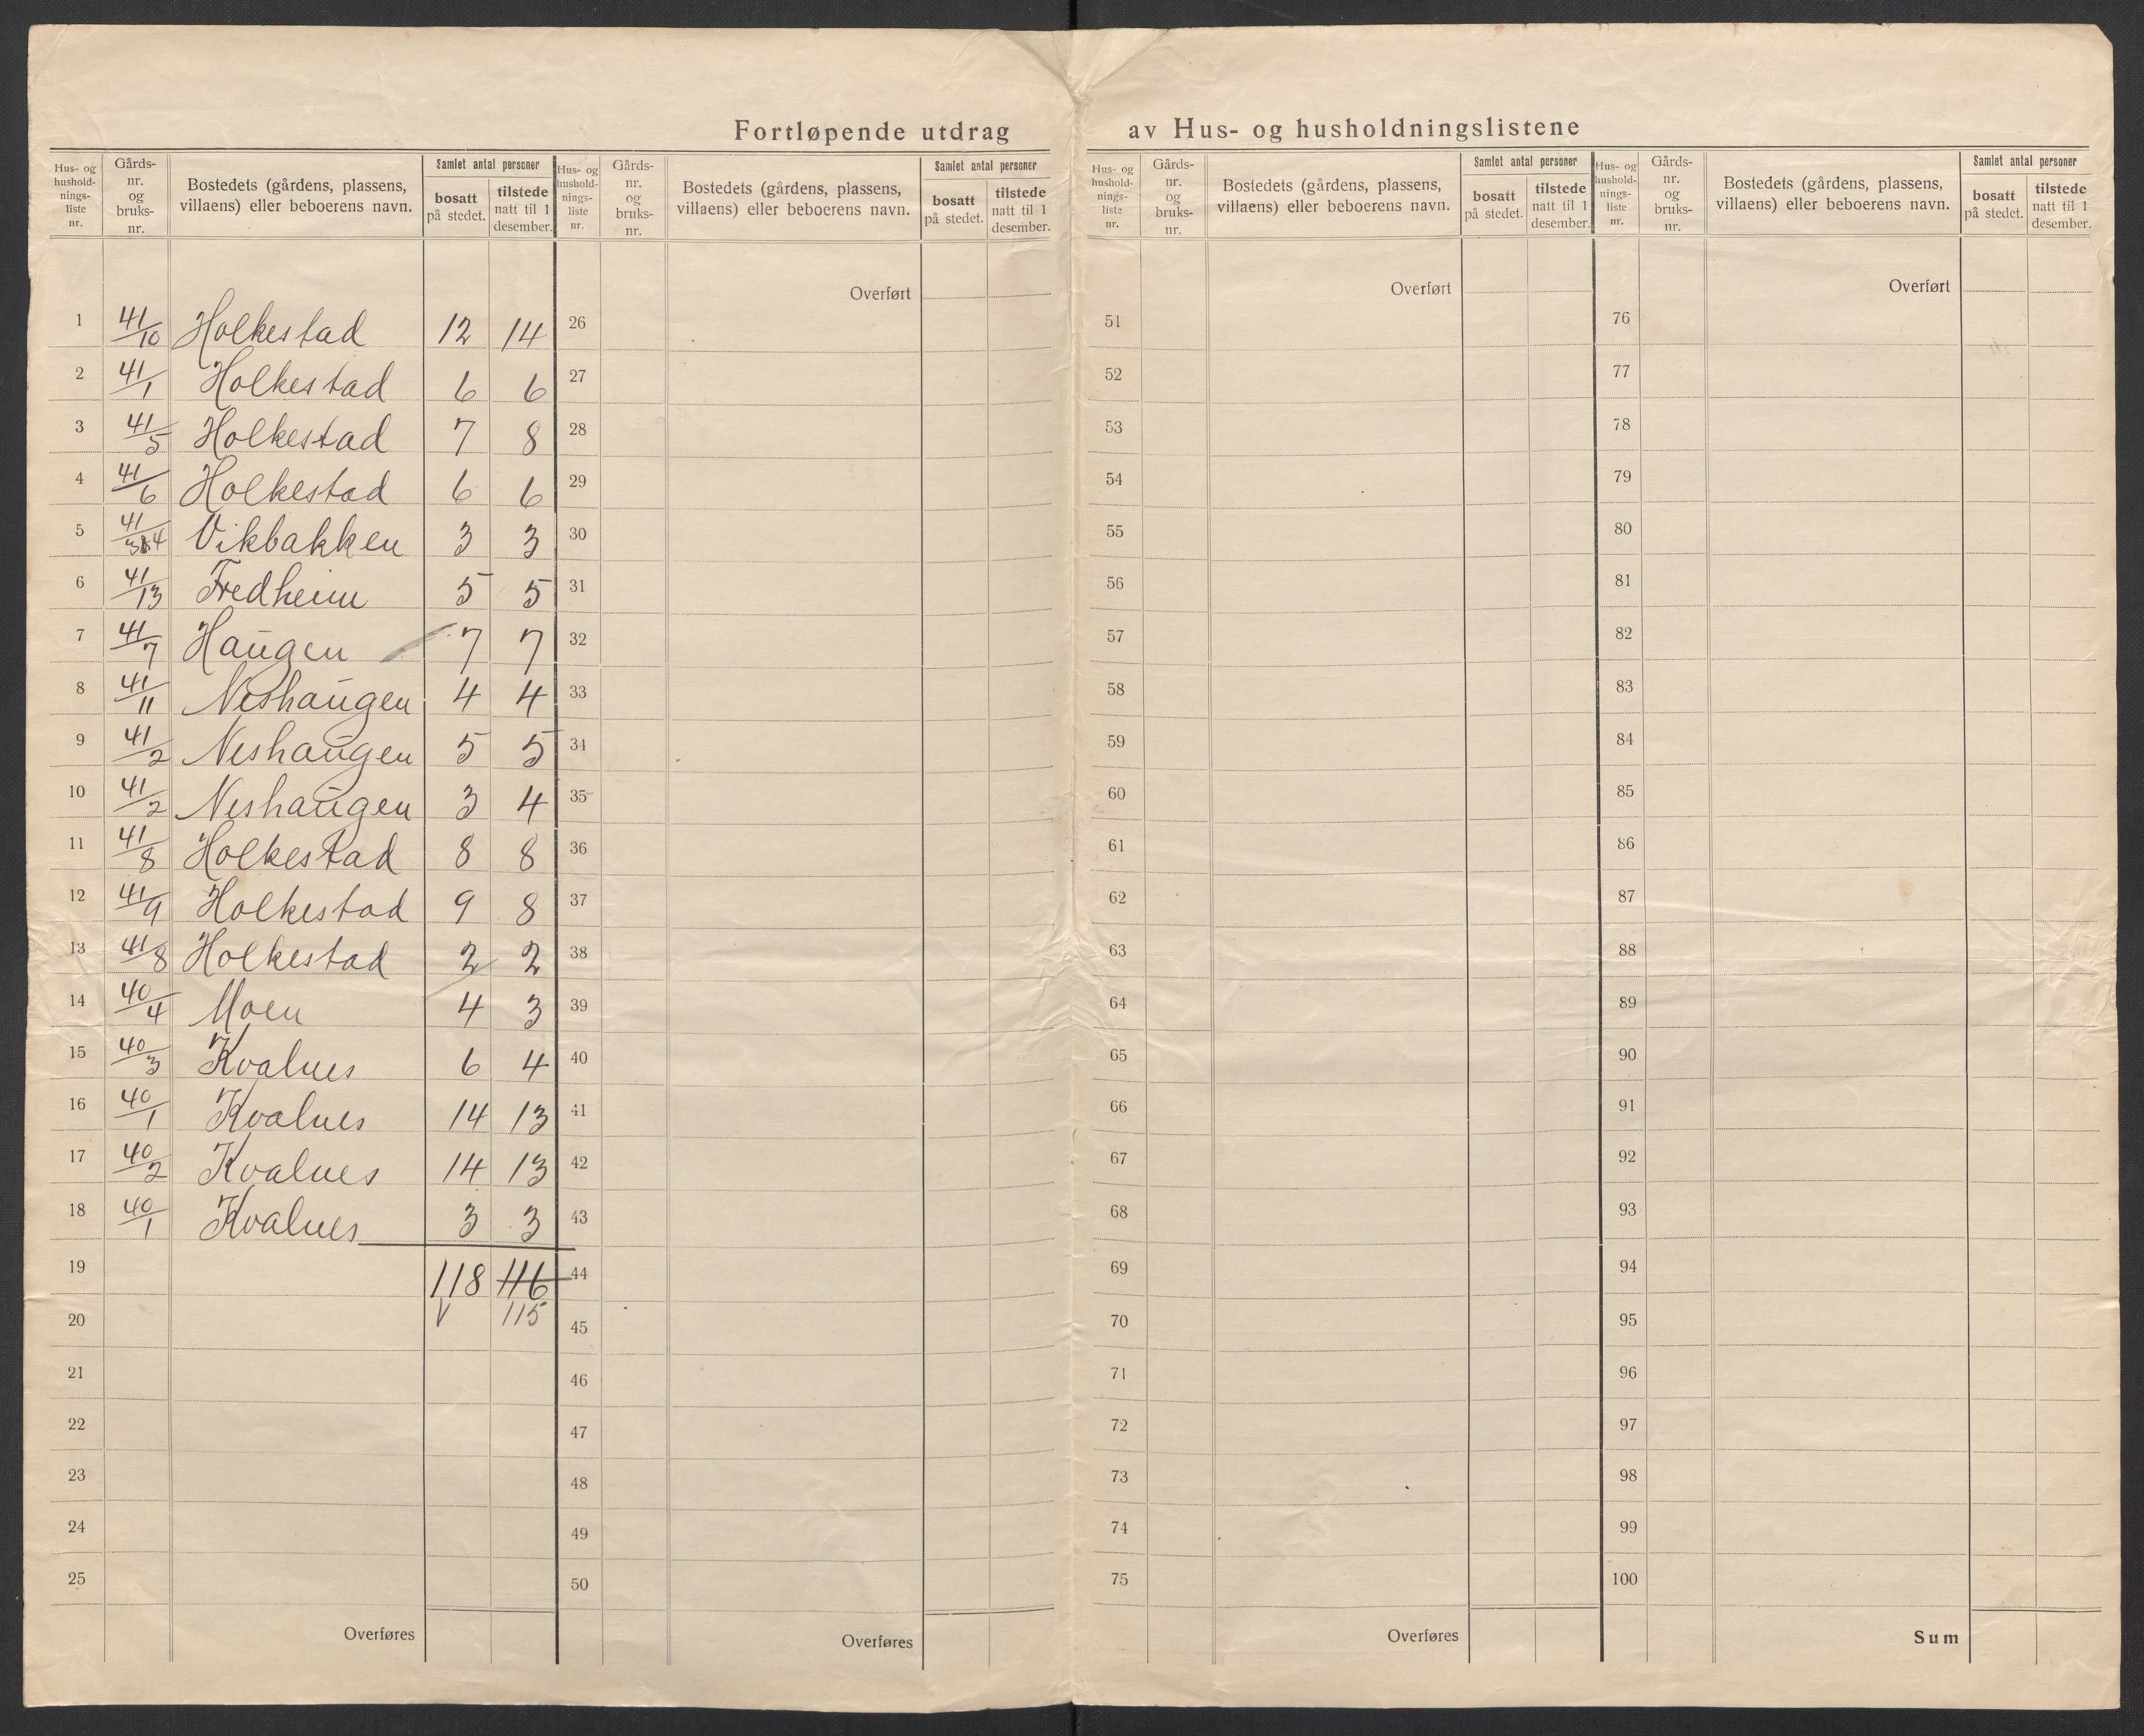 Fortløpende utdrag av Hus- og husholdningslistene
Hus- og husholdnings-liste nr. | Gårds-nr. og bruks-nr. | Bostedets (gårdens, plassens, villaens) eller beboerens navn. | Samlet antal personer | bosatt på stedet. | tilstede natt til 1 desember.
Hus- og husholdnings-liste nr. | Gårds-nr. og bruks-nr. | Bostedets (gårdens, plassens, villaens) eller beboerens navn. | Samlet antal personer | bosatt på stedet. | tilstede natt til 1 desember.
Hus- og husholdnings-liste nr. | Gårds-nr. og bruks-nr. | Bostedets (gårdens, plassens, villaens) eller beboerens navn. | Samlet antal personer | bosatt på stedet. | tilstede natt til 1 desember.
Hus- og husholdnings-liste nr. | Gårds-nr. og bruks-nr. | Bostedets (gårdens, plassens, villaens) eller beboerens navn. | Samlet antal personer | bosatt på stedet. | tilstede natt til 1 desember.
Overført Overført Overført
1 41/10 Holkestad 12 14 26 51 76
2 41/1 Holkestad 6 6 27 52 77
3 41/5 Holkestad 7 8 28 53 78
4 41/6 Holkestad 6 6 29 54 79
5 41/ Vikbakken 3 3 30 55 80
6 41/13 Fredheim 5 5 31 56 81
7 41/7 Haugen 7 7 32 57 82
8 41/11 Neshaugen 4 4 33 58 83
9 41/2 Neshaugen 5 5 34 59 84
10 41/2 Neshaugen 3 4 35 60 85
11 41/8 Holkestad 8 8 36 61 86
12 41/9 Holkestad 9 8 37 62 87
13 41/8 Holkestad 2 2 38 63 88
14 40/4 Moen 4 3 39 64 89
15 40/3 Kvalnes 6 4 40 65 90
16 40/1 Kvalnes 14 13 41 66 91
17 40/2 Kvalnes 14 13 42 67 92
18 40/1 Kvalnes 3 3 43 68 93
19 118 116 44 69 94
20 V 115 45 70 95
21 46 71 96
22 47 72 97
23 48 73 98
24 49 74 99
25 50 75 100
Overføres Overføres Overføres Sum